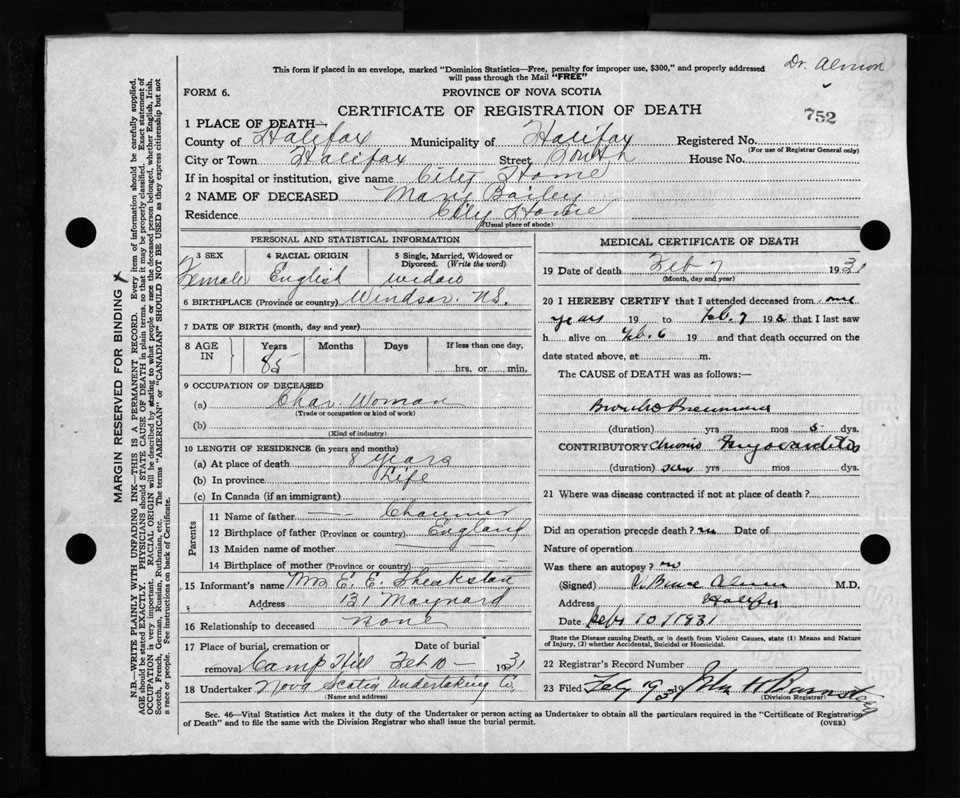 Dr. Almon
This form if placed in an envelope, marked "Dominion Statistics—Free, penalty for improper use, $300," and properly addressed
will pass through the Mail "FREE"
FORM 6.
PROVINCE OF NOVA SCOTIA
CERTIFICATE OF REGISTRATION OF DEATH
752
1 PLACE OF DEATH—
County of Halifax Municipality of Halifax Registered No.
(For use of Registrar General only)
City or Town Halifax Street South House No.
If in hospital or institution, give name City Home
2 NAME OF DECEASED Mary Bailey
Residence City Home
(Usual place of abode)
PERSONAL AND STATISTICAL INFORMATION
3 SEX 4 RACIAL ORIGIN 5 Single, Married, Widowed or
Divorced. (Write the word)
Female English widow
6 BIRTHPLACE (Province or country) Windsor. N.S.
7 DATE OF BIRTH (month, day and year)
8 AGE IN Years Months Days If less than one day,
85 hrs. or min.
9 OCCUPATION OF DECEASED
(a) Char. Woman
(Trade or occupation or kind of work)
(b)
(Kind of industry)
10 LENGTH OF RESIDENCE (in years and months)
(a) At place of death 8 years
(b) In province Life
(c) In Canada (if an immigrant)
Parents
11 Name of father —
12 Birthplace of father (Province or country) England
13 Maiden name of mother
14 Birthplace of mother (Province or country)
15 Informant's name Mrs E. E.
Address 131 Maynard
16 Relationship to deceased None
17 Place of burial, cremation or Date of burial
removal Camp Hill Feb 10 — 1931
18 Undertaker Nova Scotia Undertaking Co.
(Name and address)
MEDICAL CERTIFICATE OF DEATH
19 Date of death Feb 7 1931
(Month, day and year)
20 I HEREBY CERTIFY that I attended deceased from
years 19 to Feb. 7 19 that I last saw
h alive on Feb. 6 19 and that death occurred on the
date stated above, at m.
The CAUSE of DEATH was as follows:—
Broncho Pneumonia
(duration) yrs mos 5 dys.
CONTRIBUTORY Chronic Myocarditis
(duration) yrs mos dys.
21 Where was disease contracted if not at place of death?
Did an operation precede death? no Date of
Nature of operation
Was there an autopsy? no
(Signed) Bruce Almon M.D.
Address Halifax
Date 10/1931
State the Disease causing Death, or in death from Violent Causes, state (1) Means and Nature
of Injury, (2) whether Accidental, Suicidal or Homicidal.
22 Registrar's Record Number
23 Filed Feb 19 31 John
Division Registrar
Sec. 46—Vital Statistics Act makes it the duty of the Undertaker or person acting as Undertaker to obtain all the particulars required in the "Certificate of Registration
of Death" and to file the same with the Division Registrar who shall issue the burial permit. (OVER)
MARGIN RESERVED FOR BINDING
N.B.—WRITE PLAINLY WITH UNFADING INK—THIS IS A PERMANENT RECORD. Every item of information should be carefully supplied.
AGE should be stated EXACTLY. PHYSICIANS should STATE CAUSE OF DEATH in plain terms, so that it may be properly classified. Exact statement of
OCCUPATION is very important. RACIAL ORIGIN will be described by stating to what people or race the deceased person belonged, whether English, Irish,
Scotch, French, German, Russian, Ruthenian, etc. The terms "AMERICAN" or "CANADIAN" SHOULD NOT BE USED as they express citizenship but not
a race or people. See instructions on back of Certificate.